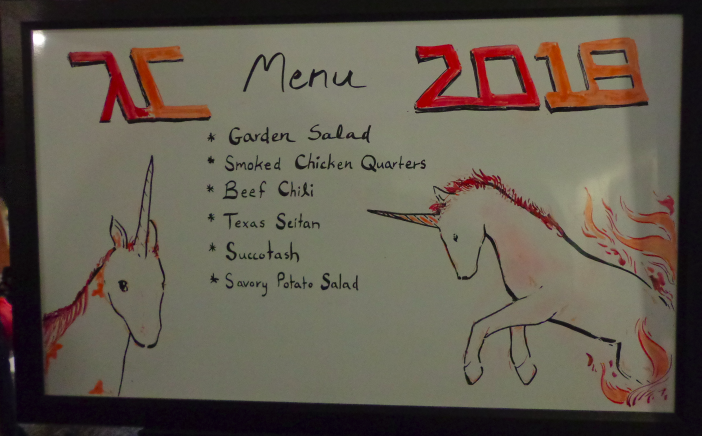 λC Menu 2018
* Garden Salad
* Smoked Chicken Quarters
* Beef Chili
* Texas Seitan
* Succotash
* Savory Potato Salad